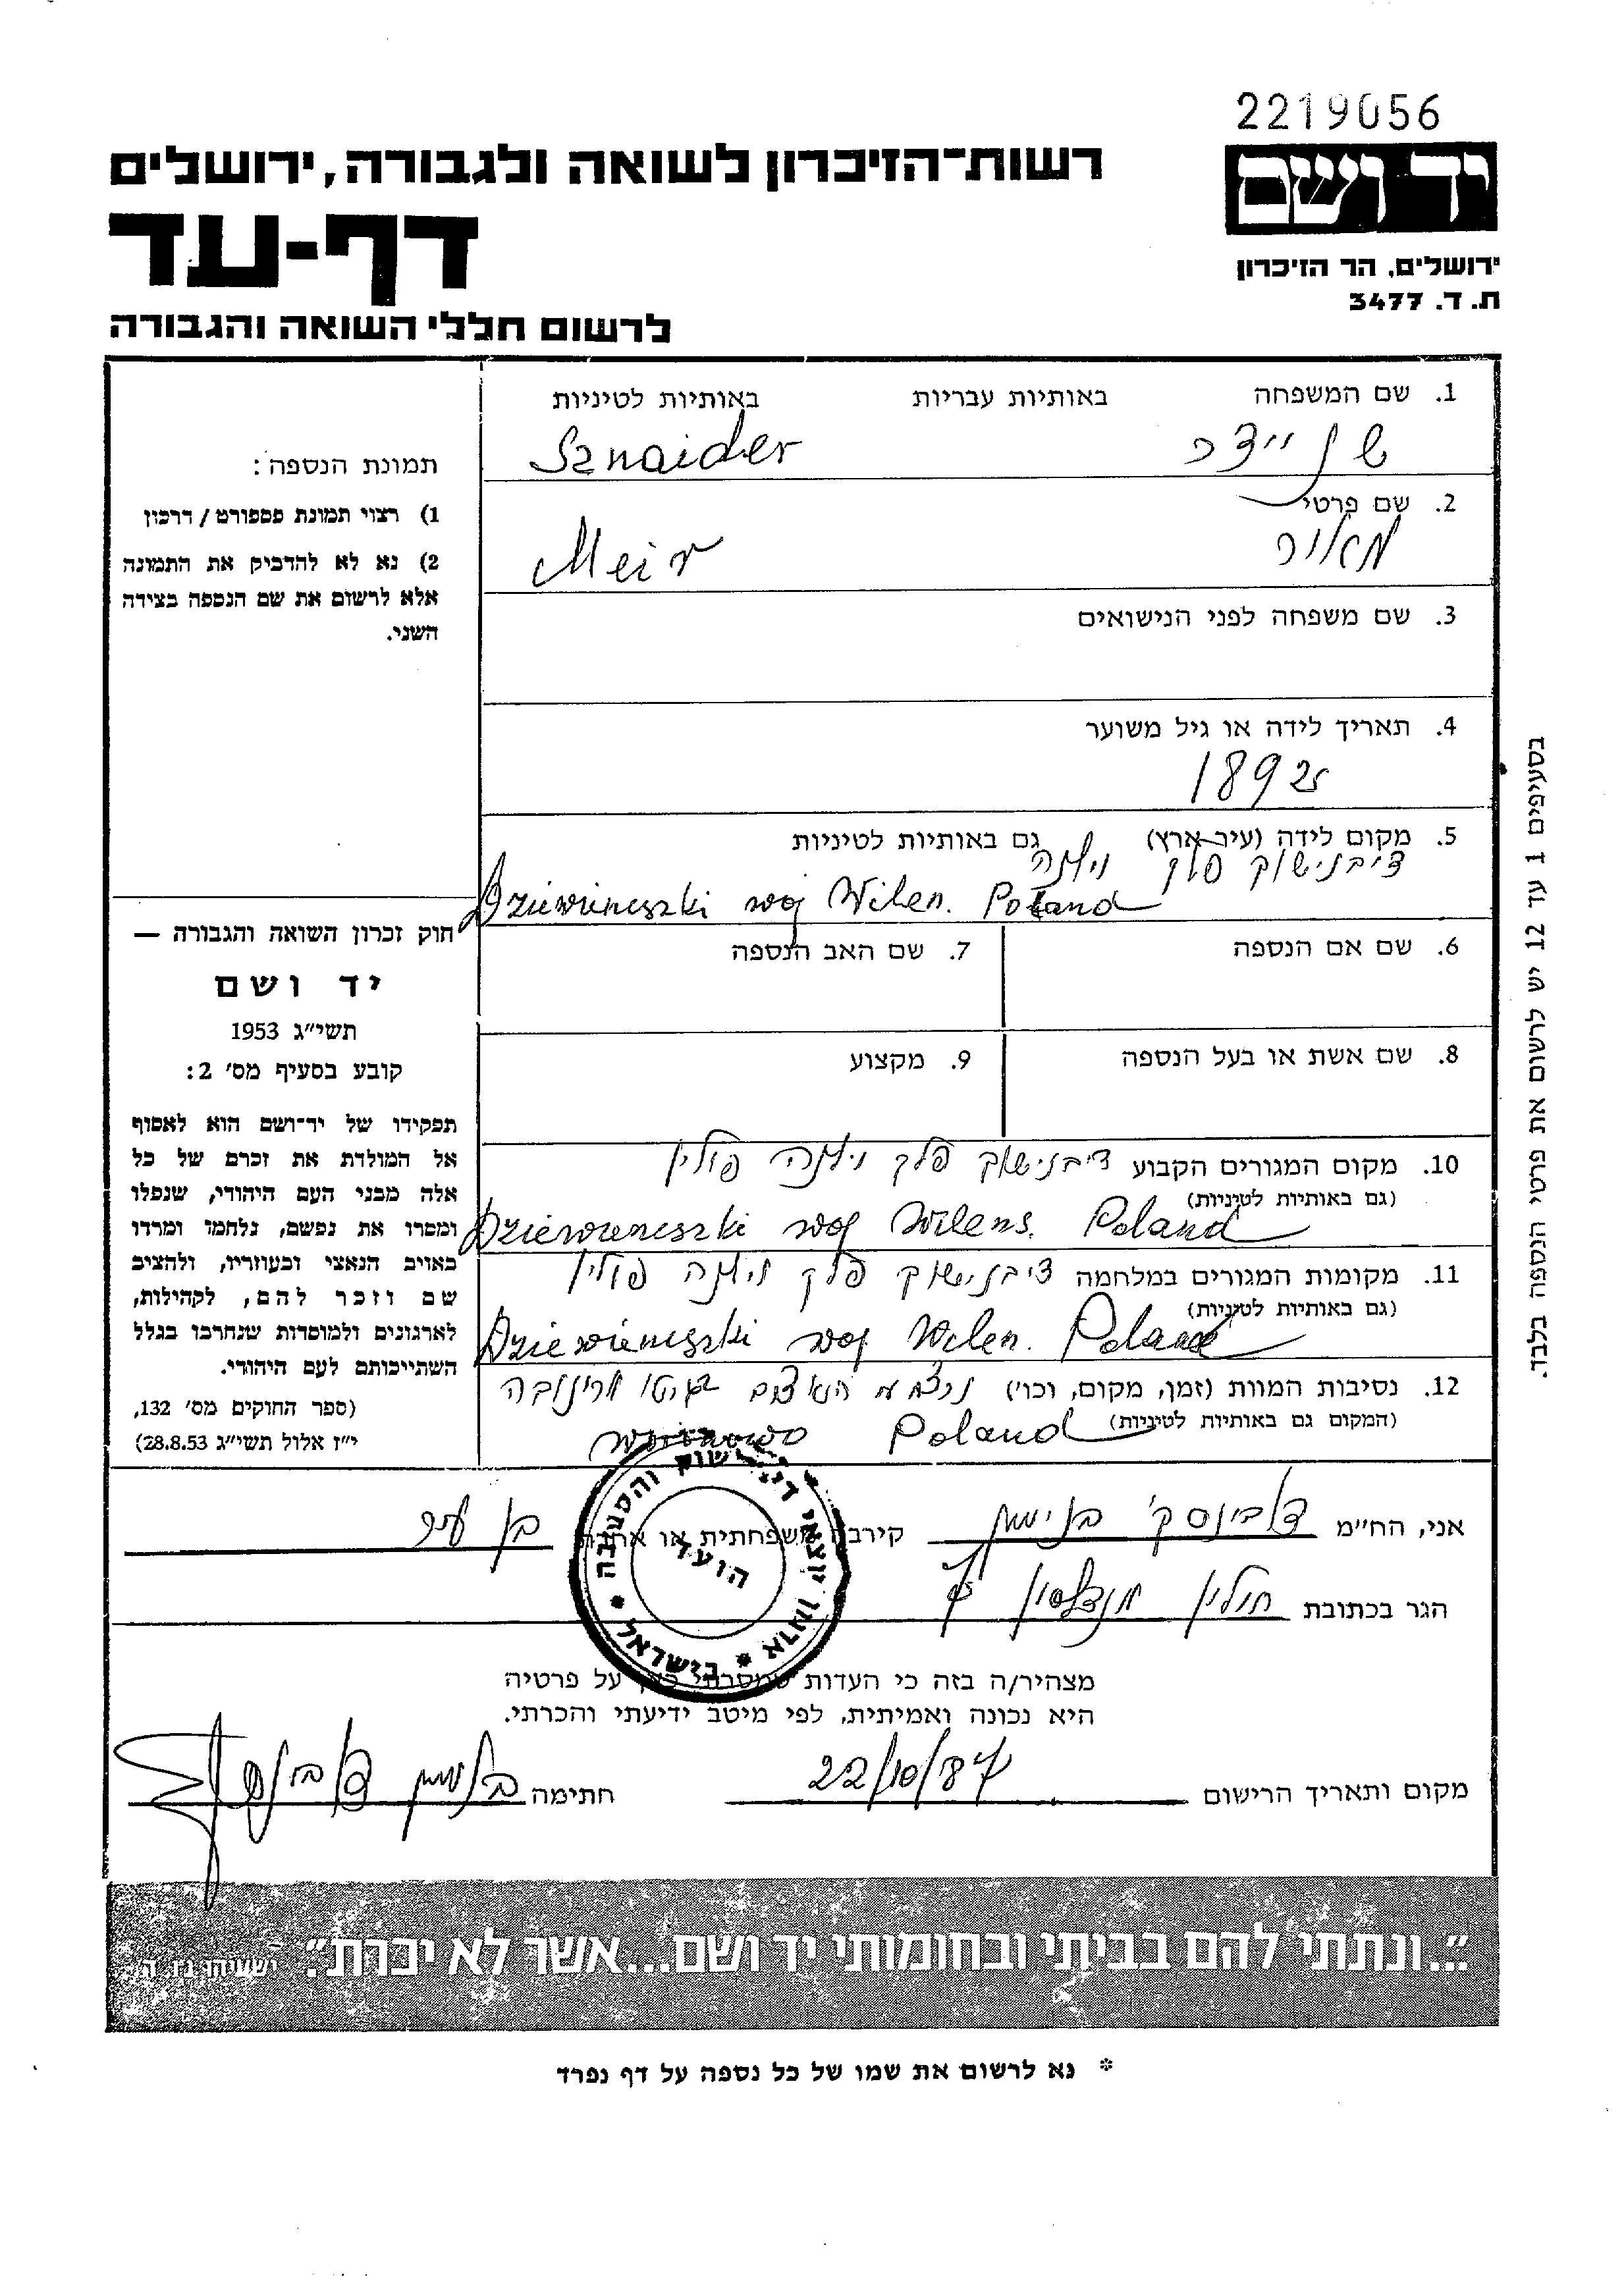 2219056
יד ושם
רשות־הזיכרון לשואה ולגבורה, ירושלים
דף-עד
ירושלים, הר הזיכרון
ת. ד. 3477
לרשום חללי השואה והגבורה
1. שם המשפחה באותיות עבריות באותיות לטיניות
שניידר Sznaider
2. שם פרטי
מאיר Meir
3. שם משפחה לפני הנישואים
4. תאריך לידה או גיל משוער
1892
5. מקום לידה (עיר ארץ) גם באותיות לטיניות
דיבנישוק פלך וילנה
Dziewieniszki woj Wilen. Poland
6. שם אם הנספה
7. שם האב הנספה
8. שם אשת או בעל הנספה
9. מקצוע
10. מקום המגורים הקבוע דיבנישוק פלך וילנה פולין
(גם באותיות לטיניות)
Dziewieniszki woj Wilens. Poland
11. מקומות המגורים במלחמה דיבנישוק פלך וילנה פולין
(גם באותיות לטיניות)
Dziewieniszki woj Wilen. Poland
12. נסיבות המוות (זמן, מקום, וכו') הנאצים בגיטו
(המקום גם באותיות לטיניות) Poland
תמונת הנספה:
1) רצוי תמונת פספורט / דרכון
2) נא לא להדביק את התמונה
אלא לרשום את שם הנספה בצידה
השני.
חוק זכרון השואה והגבורה —
יד ושם
תשי״ג 1953
קובע בסעיף מס׳ 2:
תפקידו של יד־ושם הוא לאסוף
אל המולדת את זכרם של כל
אלה מבני העם היהודי, שנפלו
ומסרו את נפשם, נלחמו ומרדו
באויב הנאצי ובעוזריו, ולהציב
שם וזכר להם, לקהילות,
לארגונים ולמוסדות שנחרבו בגלל
השתייכותם לעם היהודי.
(ספר החוקים מס׳ 132,
י״ז אלול תשי״ג 28.8.53)
בסעיפים 1 עד 12 יש לרשום את פרטי הנספה בלבד.
אני, הח״מ דובינסקי בנימין קירבה משפחתית או אחרת בן עיר
הגר בכתובת חולין
ארגון יוצאי והסביבה בישראל
הועד
מצהיר/ה בזה כי העדות שמסרתי כאן על פרטיה
היא נכונה ואמיתית, לפי מיטב ידיעתי והכרתי.
מקום ותאריך הרישום 22/10/87 חתימה בנימין דובינסקי
״...ונתתי להם בביתי ובחומותי יד ושם...אשר לא יכרת״. ישעיהו נו ה
* נא לרשום את שמו של כל נספה על דף נפרד